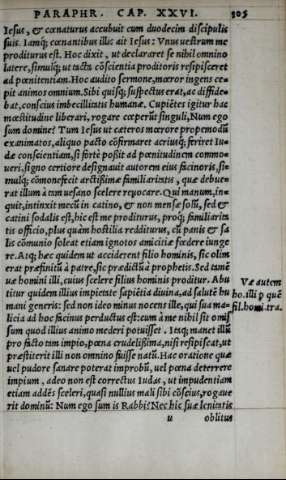 PARAPHR. CAP. XXVI. 305
Iesus, & cœnaturus accubuit cum duodecim discipulis
suis. Iamq́; cœnantibus illis ait Iesus: Vnus uestrum me
proditurus est. Hoc dixit, ut declararet se nihil omnino
latere, simulq́; ut tacta cōscientia proditoris resipisceret
ad pœnitentiam. Hoc audito sermone, mœror ingens ce⸗
pit animos omnium. Sibi quisq; suspectus erat, ac diffide⸗
bat, conscius imbecillitatis humanæ. Cupiētes igitur hac
mœstitudine liberari, rogare cœperūt singuli, Num ego
sum domine? Tum Iesus ut cæteros mœrore propemodū
exanimatos, aliquo pacto cōfirmaret acriusq́; feriret Iu⸗
dæ conscientiam, si fortè possit ad pœnitudinem commo⸗
ueri, signo certiore designauit autorem eius facinoris, si⸗
mulq́; cōmonefecit arctissimæ familiaritatis, quæ debue⸗
rat illum à tam uesano scelere reuocare. Qui manum, in⸗
quit, intinxit mecū in catino, & non mensæ solū, sed &
catini sodalis est, hic est me proditurus, proq́; familiarita
tis officio, plus quàm hostilia redditurus, cū panis & sa
lis cōmunio soleat etiam ignotos amicitiæ fœdere iunge
re. Atq; hæc quidem ut acciderent filio hominis, sic olim
erat præfinitū à patre, sic prædictū à prophetis. Sed tamē
uæ homini illi, cuius scelere filius hominis proditur. Abu
titur quidem illius impietate sapiētia diuina, ad salutē hu
mani generis: sed non ideo minus nocens ille, qui sua ma⸗
licia ad hoc facinus perductus est: cum à me nihil sit omis
sum quod illius animo mederi potuisset. Itaq; manet illū
pro facto tam impio, pœna crudelissima, nisi resipiscat, ut
præstiterit illi non omnino fuisse natū. Hac oratione quæ
uel pudore sanare poterat improbū, uel pœna deterrere
impium, adeo non est correctus Iudas, ut impudentiam
etiam addēs sceleri, quasi nullius mali sibi cōscius, rogaue
rit dominū: Num ego sum is Rabbi? Nec hic suæ lenitatis
u oblitus
Væ autem
ho. illi p quē
fil. homi. tra.